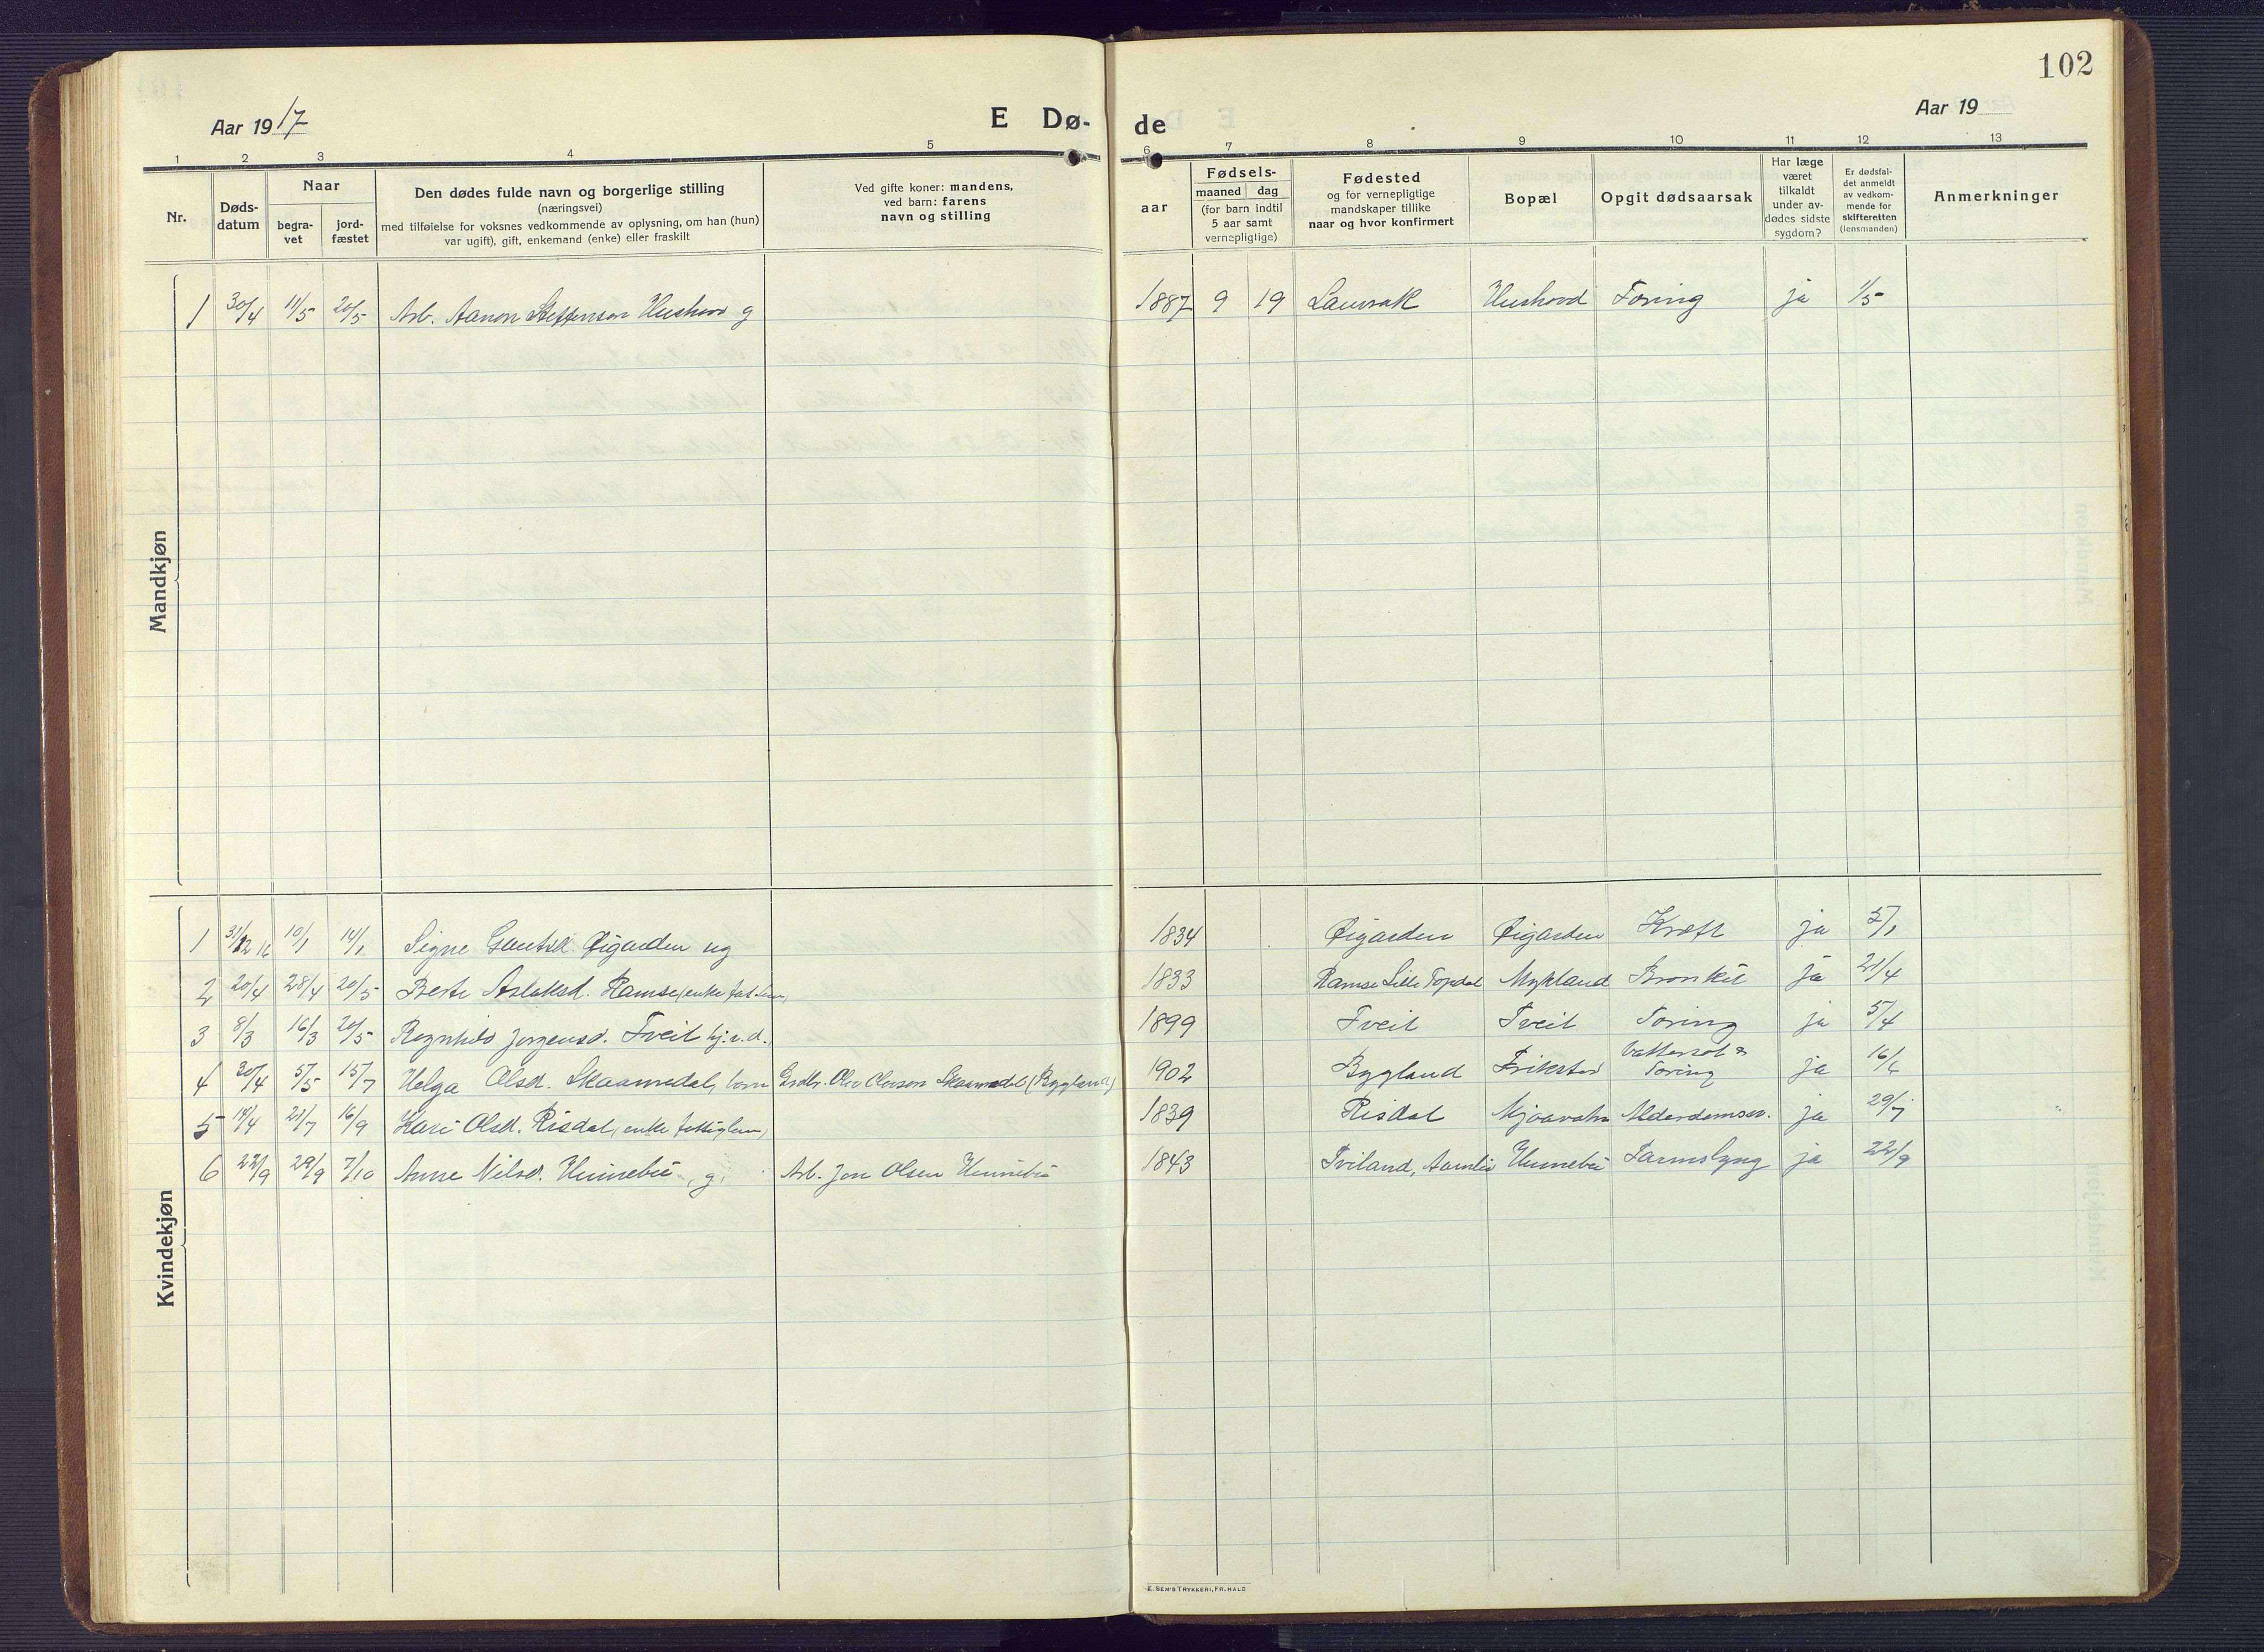 102
Aar 1917
E Dø-
de
Aar 19
1 2 3 4 5 6 7 8 9 10 11 12 13
Nr.
Døds-
datum
Naar
begra-
vet
jord-
fæstet
Den dødes fulde navn og borgerlige stilling
(næringsvei)
med tilføielse for voksnes vedkommende av oplysning, om han (hun)
var ugift), gift, enkemand (enke) eller fraskilt
Ved gifte koner: mandens,
ved barn: farens
navn og stilling
aar
Fødsels-
maaned dag
(for barn indtil
5 aar samt
vernepligtige)
Fødested
og for vernepligtige
mandskaper tillike
naar og hvor konfirmert
Bopæl
Opgit dødsaarsak
Har læge
været
tilkaldt
under av-
dødes sidste
sygdom?
Er dødsfal-
det anmeldt
av vedkom-
mende for
skifteretten
(lensmanden)
Anmerkninger
Mandkjøn
1 30/4 11/5 20/5 Arb. Aanon Steffenson Hushovd g 1887 9 19 Lauvrak Hushovd Tæring ja 1/5
Kvindekjøn
1 31/12 16 10/1 14/1 Signe Gautsd. Øigarden ug 1834 Øigarden Øigarden Kræft ja 5/1
2 20/4 28/4 20/5 Berte Aslaksd. Ramse, enke 1833 Ramse Lille Topdal Mykland Bronkit ja 21/4
3 8/3 16/3 20/5 Ragnhild Jørgensd. Tveit hj.v.d. 1899 Tveit Tveit Tæring ja 5/4
4 30/4 5/5 15/7 Helga Olsd. Skaamedal, barn Grdbr. Olav Olavson Skaamedal (Bygland) 1902 Bygland Frikstad Vattersot & Tæring ja
5 21/7 16/9 Kari Olsd. Risdal, enke fattiglem, 1839 Risdal Mjaavatn Alderdomssv. ja 29/7
6 22/9 29/9 7/10 Anne Nilsd. Hinnebu, g. Arb. Jon Olsen Hinnebu 1843 Tviland, Aamli Hinnebu Tarmslyng ja 22/9
E. SEM'S TRYKKERI, FR.HALD